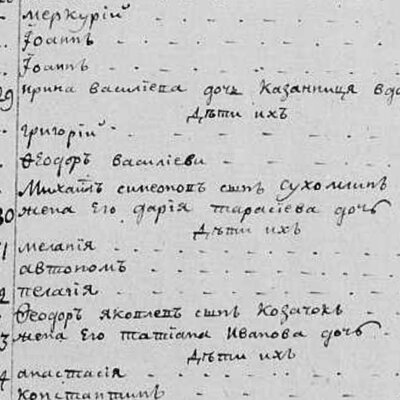 меркурій
Іоаннъ
Іоаннъ
29 ирина василіева дочь Казанниця вдо
Дѣти ихъ
григорій
Ѳеодоръ василіеви
Михаилъ симеоновъ сынъ сухомлинъ
30 жена Его дарія тарасіева дочь
Дѣти ихъ
1 меланія
автономъ
2 пелагія
Ѳеодоръ яковлевъ сынъ Козачокъ
3 жена Его татіана Иванова дочь
Дѣти ихъ
4 анастасія
константинъ